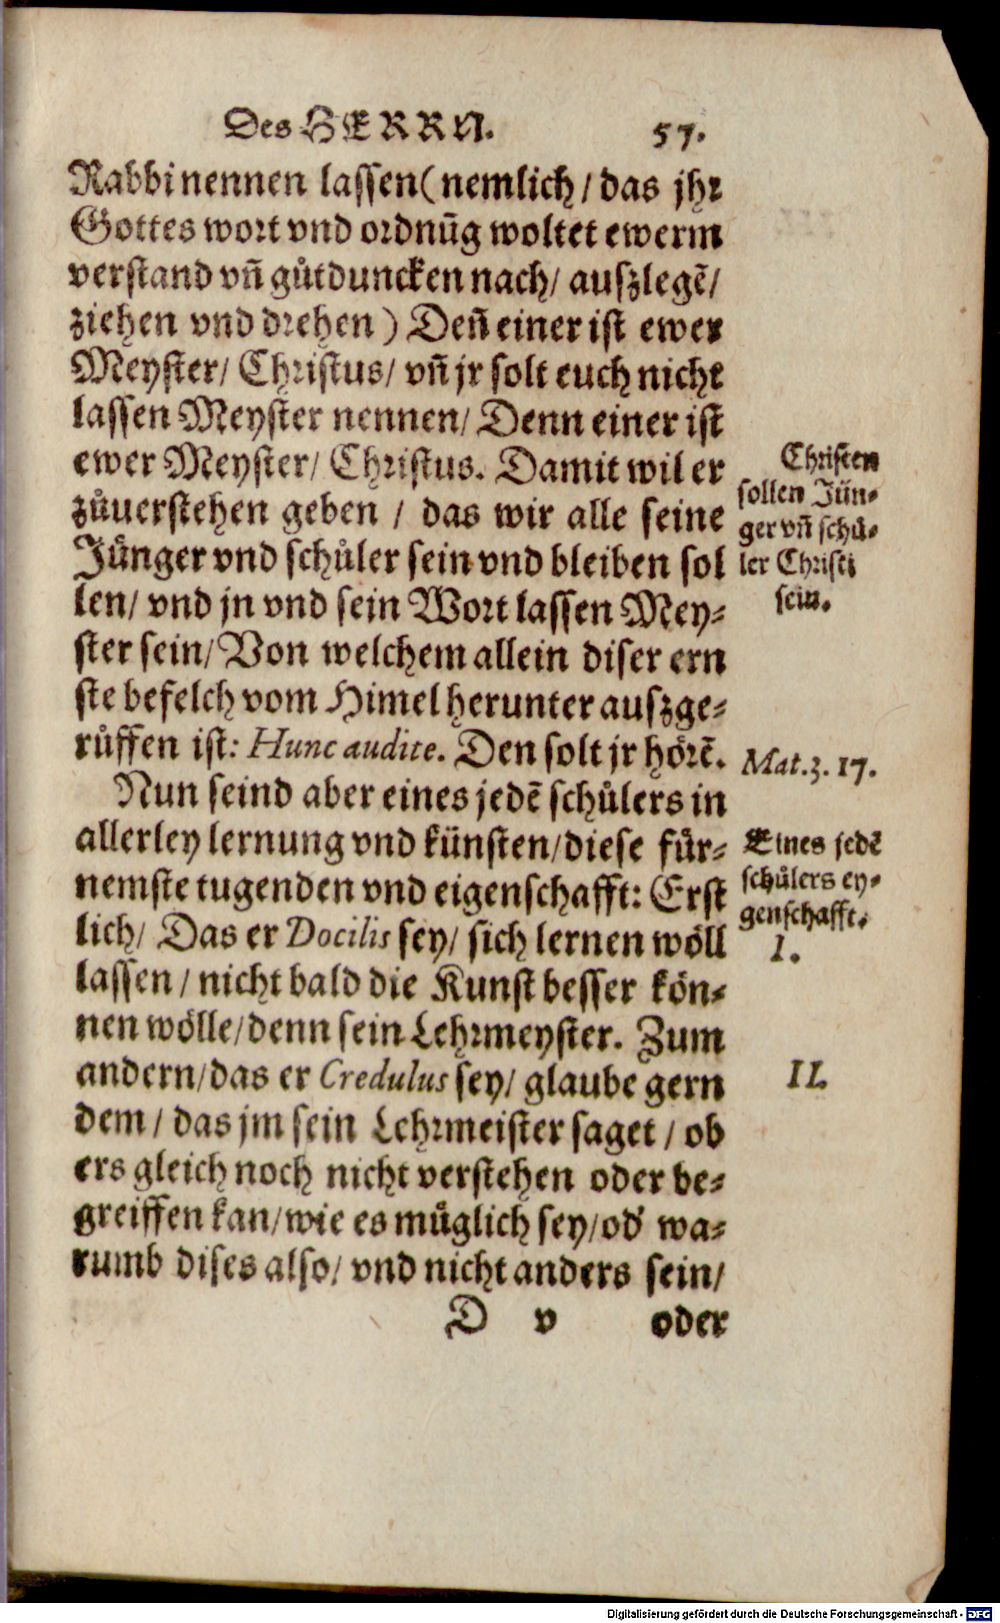 Des HERRN. 57.
Rabbi nennen lassen (nemlich / das jhr
Gottes wort vnd ordnūg woltet ewerm
verstand vn̄ gůtduncken nach / auszlegē /
ziehen vnd drehen) Den̄ einer ist ewer
Meyster / Christus / vn̄ jr solt euch nicht
lassen Meyster nennen / Denn einer ist
ewer Meyster / Christus. Damit wil er
zůuerstehen geben / das wir alle seine
Jünger vnd schůler sein vnd bleiben sol
len / vnd jn vnd sein Wort lassen Mey⸗
ster sein / Von welchem allein diser ern
ste befelch vom Himel herunter auszge⸗
růffen ist: Hunc audite. Den solt jr hörē.
Nun seind aber eines jedē schůlers in
allerley lernung vnd künsten / diese für⸗
nemste tugenden vnd eigenschafft: Erst
lich / Das er Docilis sey / sich lernen wöll
lassen / nicht bald die Kunst besser kön⸗
nen wölle / denn sein Lehrmeyster. Zum
andern / das er Credulus sey / glaube gern
dem / das jm sein Lehrmeister saget / ob
ers gleich noch nicht verstehen oder be⸗
greiffen kan / wie es müglich sey / od' wa⸗
rumb dises also / vnd nicht anders sein /
D v oder
Christen
sollen Jün⸗
ger vn̄ schů⸗
ler Christi
sein.
Mat. 3. 17.
Eines jedē
schůlers ey⸗
genschafft.
I.
II.
Digitalisierung gefördert durch die Deutsche Forschungsgemeinschaft - DFG